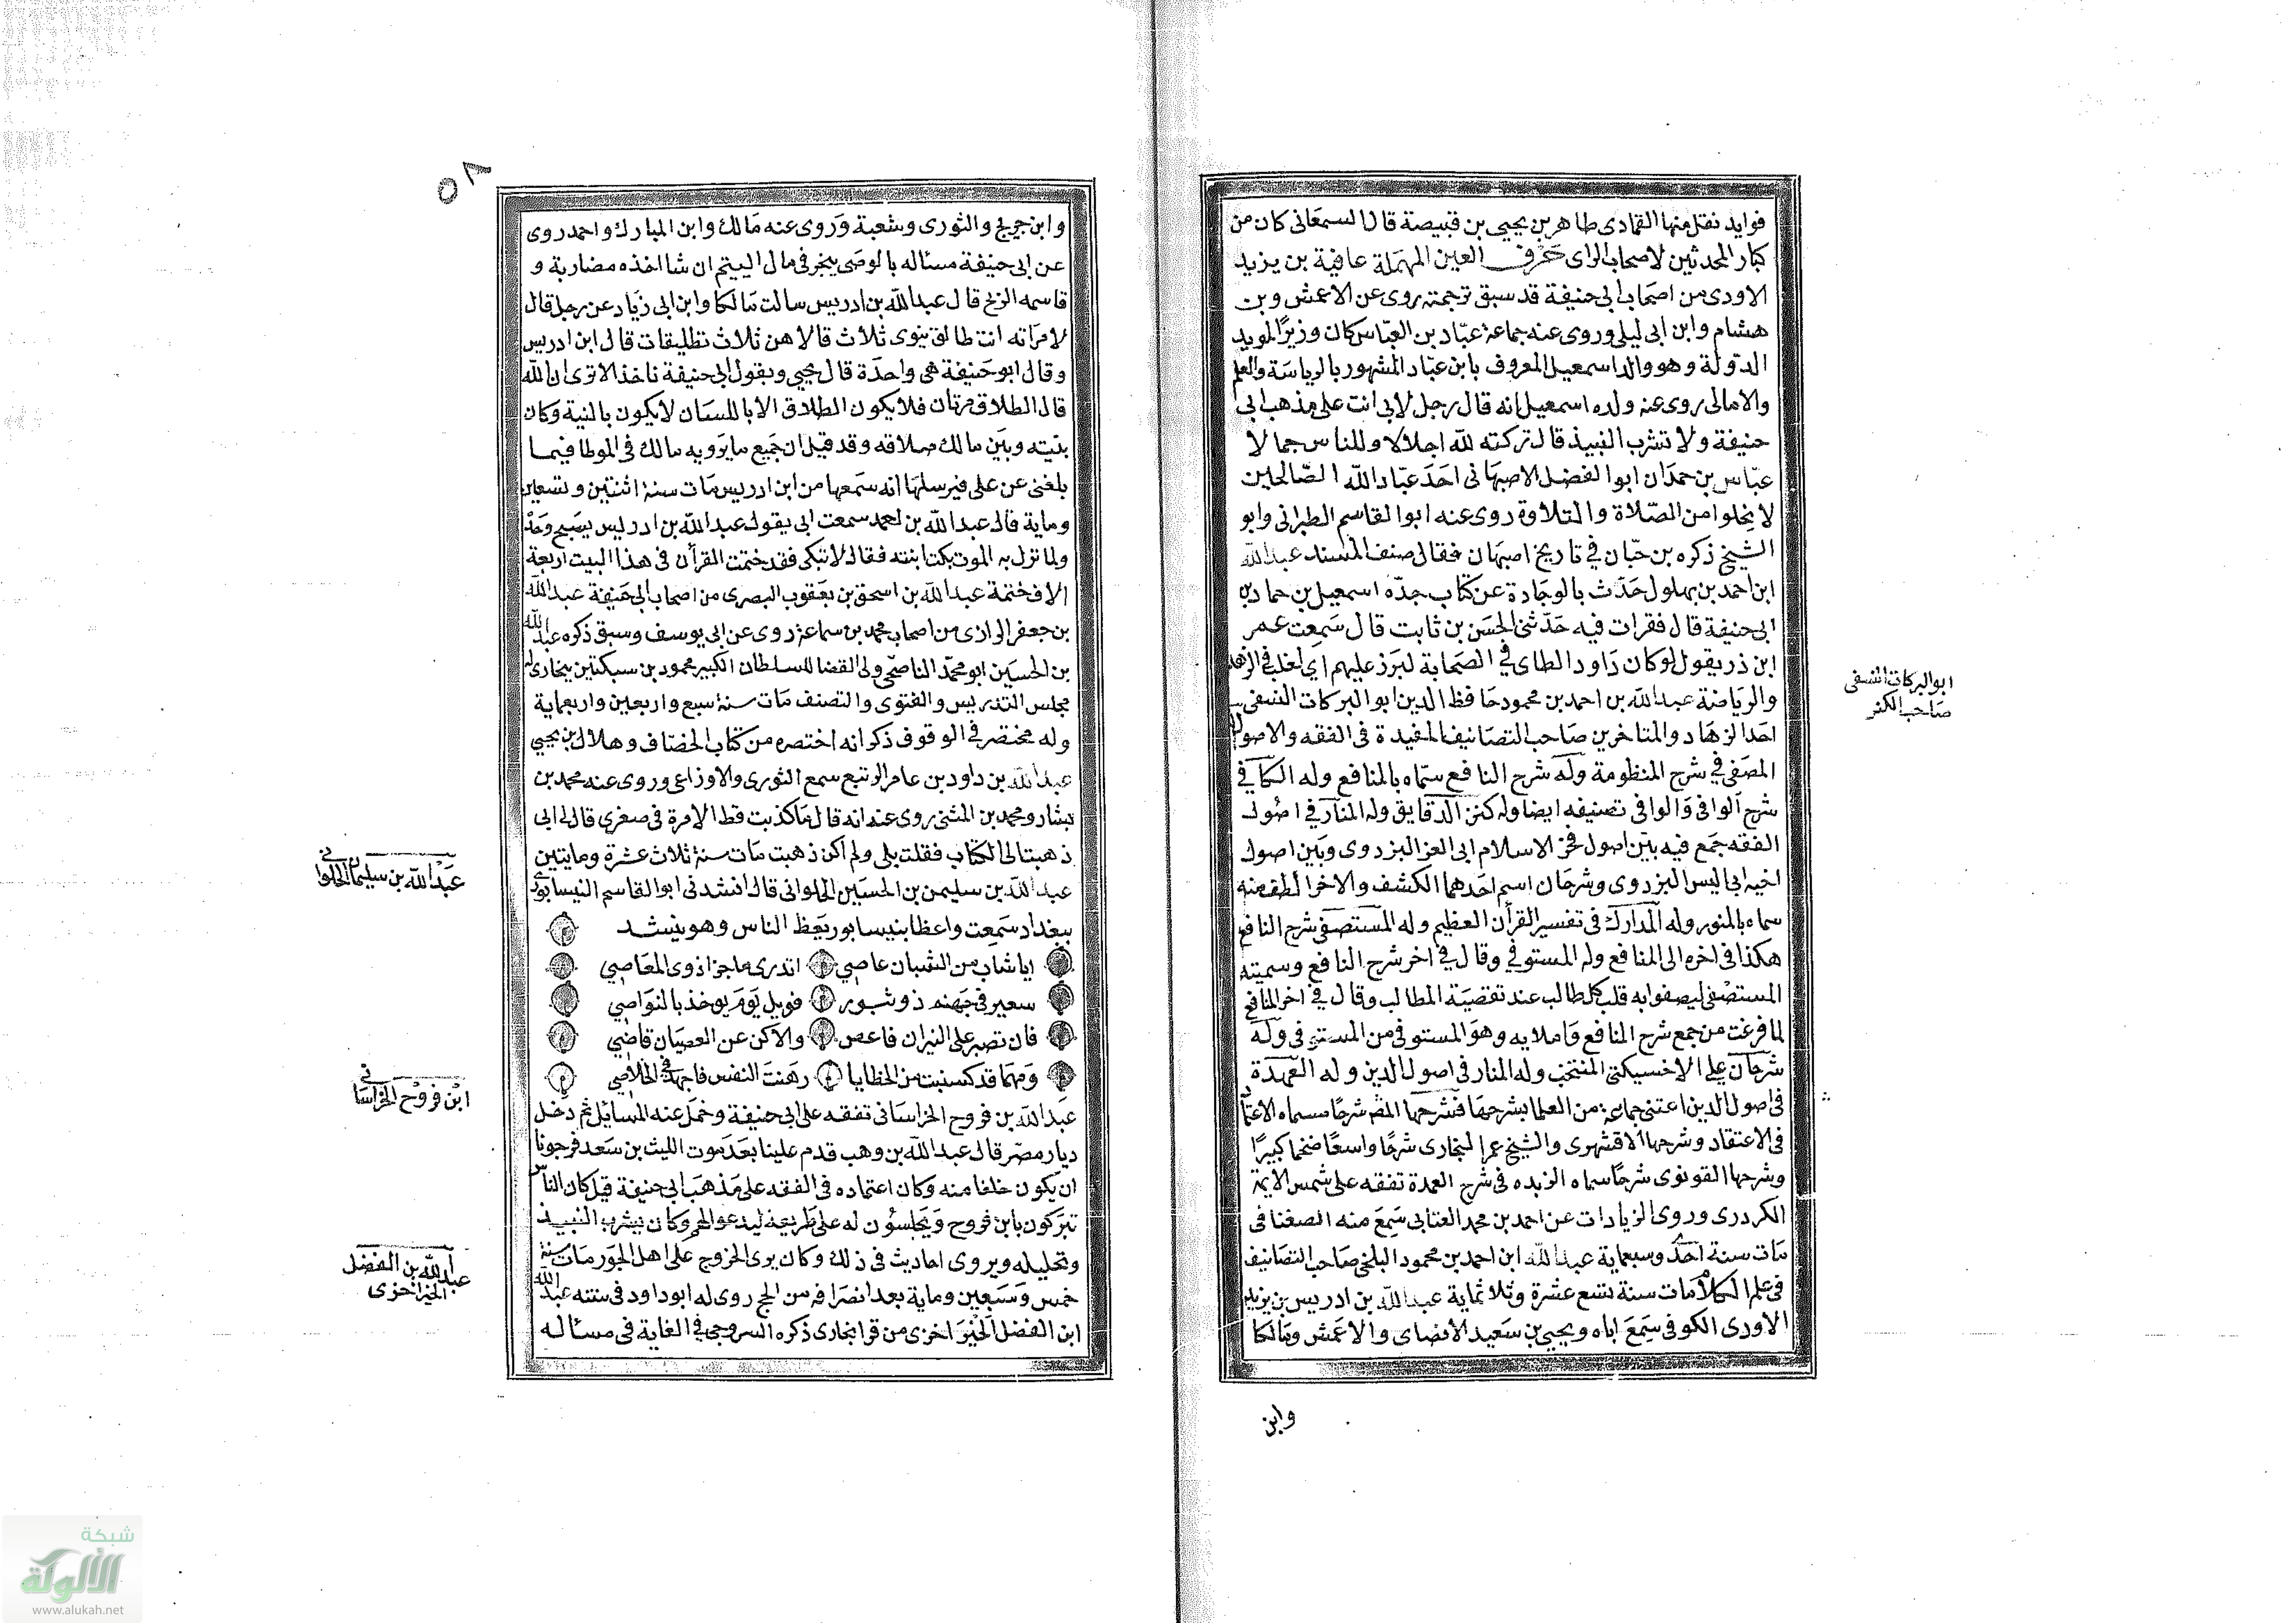 فوايد نقل منها القمادى طاهر بن يحيى بن قبيصة قال السمعانى كان من
كبار المحدثين لاصحاب الراى حرف العين المهملة عافية بن يزيد
الاودى من اصحاب ابى حنيفة قد سبق ترجمته روى عن الاعمش وبن
هشام وابن ابى ليلى وروى عنه جماعة عبّاد بن العبّاس كان وزيرًا لمويد
الدّولة وهو والد اسمعيل المعروف بابن عبّاد المشهور بالرياسَة والعلم
والامالى روى عنه ولده اسمعيل انه قال رجل لابى انت على مذهب ابى
حنيفة ولا تشرب النبيذ قال تركته لله اجلالا وللناس جمالا
عبّاس بن حمدَان ابو الفضل الاصبهَانى احَدَ عبّاد الله الصّالحين
لا يخلوا من الصّلاة والتلاوة روى عنه ابو القاسم الطبرانى وابو
الشيخ ذكره بن حبّان في تاريخ اصبهان فقال صنف المسند عبد الله
ابن احمد بن بهلول حَدّث بالوجادة عن كتاب جدّه اسمعيل بن حماد بن
ابى حنيفة قال فقرات فيه حَدّثنى الحسَن بن ثابت قال سَمِعت عمر
ابن ذر يقول لو كان دَاود الطاى في الصحَابة لبرز عليهم اي لغلب في الزهد
والرياضة عبد الله بن احمد بن محمود حَافظ الدين ابو البركات النسفى
احَد الزهاد والمتاخرين صَاحب التصَانيف المفيدة فى الفقه والاصول له
المصَفى في شرح المنظومة وله شرح النافع سمّاه بالمنافع وله الكافي في
شرح الوافى وَالوافى تصنيفه ايضا وله كنز الدقايق وله المنار في اصُول
الفقه جمَع فيه بيَن اصول فخر الاسلام ابى العز البزدوى وبَين اصول
اخيه ابى اليسر البزدوى وشرحَان اسم احَدهما الكشف والاخر الطف منه
سماه بالمنور وله المدارك فى تفسير القرآن العظيم وله المستصفى شرح النافع
هكذا فى اخره الى المنافع وله المستوفي وقال في اخر شرح النافع وسميته
المستصْفى ليصفوا به قلب كل طالب عند تقضيَة المطالب وقال في اخر المنافع
لما فرغت من جمع شرح النافع وَاملايه وهوَ المستوفى من المستوفى وله
شرحَان على الاخسيكتى المنتخب وله المنار فى اصول الدين وله العمدَة
فى اصول الدين اعتنى جماعة من العلما بشرحهَا فشرحَها المصْ شرحًا سماه الاعتمَاد
فى الاعتقاد وشرحهَا الاقشهرى والشيخ عمر البخارى شرحًا واسعًا ضخمًا كبيرًا
وشرحهَا القونوى شرحًا سماه الزبده فى شرح العمدة تفقه على شمس الايمة
الكردرى وروى الزيادات عن احمد بن محمد العتابى سَمِعَ منه الصغناقى
مَات سنة احدَى وسبعماية عبد الله ابن احمد بن محمود البلخى صَاحب التصَانيف
فى علم الكلام مَات سنة تسع عشرة وثلاثماية عبد الله بن ادريس بن يزيد
الاودى الكوفى سَمِعَ اباه ويحيى بن سَعيد الانصَاى والاعمش ومَالكا
وابن
ابو البركات النسفى
صَاحب الكنز
٥٨
وابن جريج والثورى وشعبة وَروى عنه مَالك وابن المبارك واحمد روى
عن ابى حنيفة مسئاله بالوصى يتجر فى مال اليتيم ان شا اخذه مضاربة و
قاسمه الربح قال عبد الله بن ادريس سالت مَالكا وابن ابى زيَاد عن رجل قال
لامرَاته انت طالق ينوى ثلاث قالا هن ثلاث تطليقات قال ابن ادريس
وقال ابو حَنيفة هى واحدَة قال يحيى وبقول ابى حنيفة ناخذ الا ترى ان الله
قال الطلاق مرّتان فلا يكون الطلاق الا باللسَان لا يكون بالنية وكان
بنيته وبَين مالك صداقه وقد قيل ان جَميع ما يروَيه مالك فى الموطا فيما
بلغنى عن على فيرسلهَا انه سَمعها من ابن ادريس مَات سنة اثنتين وتسعين
وماية قال عبد الله بن احمد سمعت ابى يقول عبد الله بن ادريس يصبح وَحْدَ
ولما نزل به الموت بكت ابنته فقال لا تبكى فقد ختمت القرآن فى هذا البيت اربعة
الاف ختمة عبد الله بن اسحق بن يعَقوب البصرى من اصحَاب ابى حَنيفة عبد الله
بن جعفر الرازى من اصحاب محمد بن سماعة روى عن ابى يوسف وسبق ذكره عبد الله
بن الحسَين ابو محمّد الناصحى ولى القضا للسلطان الكبير محمود بن سبكتين ببخارى له
مجلس التدريس والفتوى والتصنف مَات سنة سبع واربعين واربعماية
وله مختصر فى الوقوف ذكر انه اختصره من كتاب الخصّاف وهلال بن يحيى
عبد الله بن داود بن عامر الربتيع سمع الثورى والاوزاعى وروى عنه محمد بن
بشار ومحمد بن المثنى روى عنه انه قال مَا كذبت قط الا مرة فى صغرى قال لى ابى
ذهبت الى الكتاب فقلت بلى ولم اكن ذهبت مَات سنة ثلاث عشرة ومايتين
عبد الله بن سليمن بن الحسَين الحلوانى قال انشدنى ابو القاسم النيسابورى
ببغداد سَمعت واعظا بنيسابور يَعظ الناس وهو ينشد
ايا شاب من الشبان عَاصي اتدرى ما جزا ذوى المعَاصِي
سعير فى جهنم ذو شبور فويل يوَم يوخذ بالنوَاصِي
فان تصبر على النيران فاعص والا كن عن العصيَان قاصِي
وَمهمَا قد كسبت من الخطايا رهنت النفس فاجهد فى الخلاصِي
عبد الله بن فروح الخراسَانى تفقه على ابى حنيفة وحمل عنه المسَايل ثم دخل
ديار مصْر قال عبد الله بن وهب قدم علينا بعَد مَوت الليث بن سَعد فرجونا
ان يكون خلفا منه وَكان اعتماده فى الفقه على مَذهَب ابى حنيفة قيل كان الناس
تبرَكون بابن فروح وَيَجلسؤن له على طَريقه ليدعو لهم وكان يشرب النبيذ
وتحليله ويروى احاديث فى ذلك وكان يرى الخروج على اهل الجوَر مَات سنة
خمس وَسَبعين وماية بعد انصَرافه من الحج روى له ابو داود فى سننه عبد الله
ابن الفضل الخيْزَ اخزى من قرا بخارى ذكره السروجى في الغاية فى مسئاله
عَبْد الله بن سليمَان الحلوانى
ابْن فروْح الخرَاسَانى
عبد الله بن الفضل
الخيزاخزى
شبكة
الألوكة
www.alukah.net